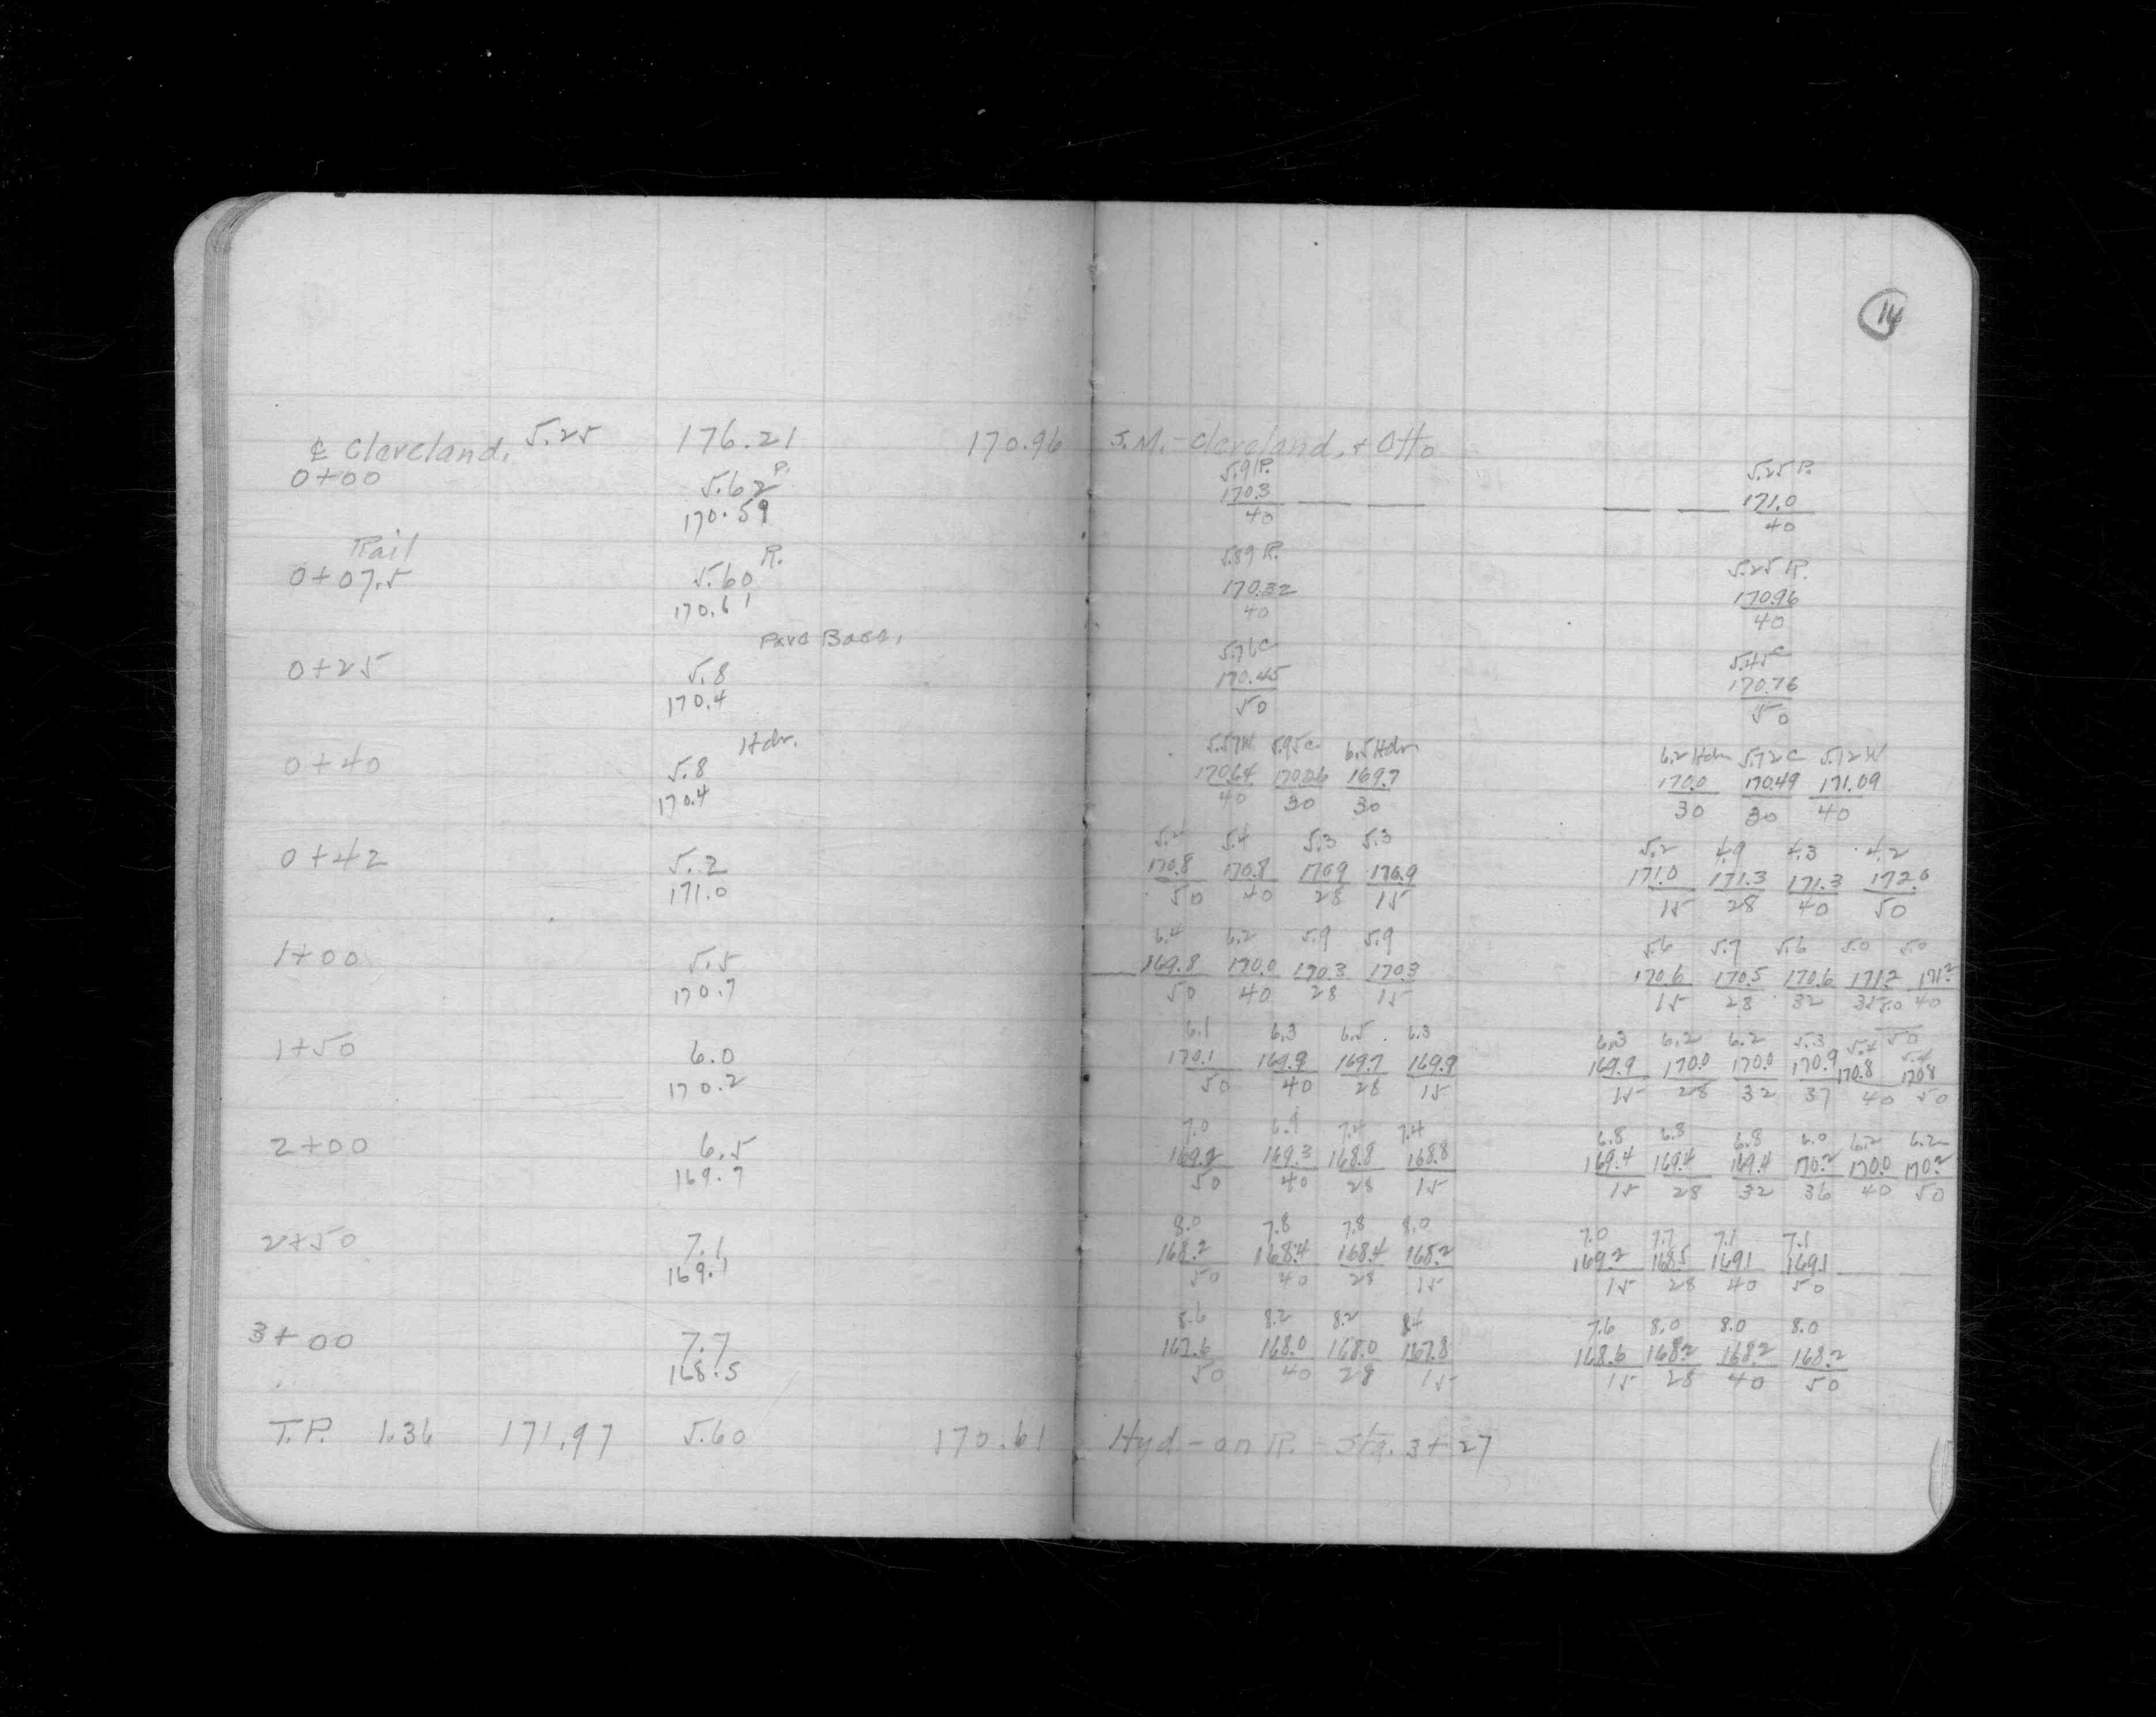 14
℄ Cleveland. 5.25 176.21 170.96 S.M. - Cleveland. + Otto
P. 5.91P. 5.25 P.
0+00 5.62 170.3 171.0
170.59 40 40
Rail R. 5.89 R. 5.25 R.
0+07.5 5.60 170.32 170.96
170.61 40 40
Pave Base. 5.76C 5.45C
0+25 5.8 170.45 170.76
170.4 50 50
Hdr. 5.57W 5.95C 6.5 Hdr 6.2 Hdr 5.72C 5.12W
0+40 5.8 170.64 170.26 169.7 170.0 170.49 171.09
170.4 40 30 30 30 30 40
5.4 5.3 5.3 5.2 4.9 4.3 4.2
0+42 5.2 170.8 170.8 170.9 170.9 171.0 171.3 171.3 172.0
171.0 50 40 28 15 15 28 40 50
6.4 6.2 5.9 5.9 5.6 5.7 5.6 5.0 5.0
1+00 5.5 169.8 170.0 170.3 170.3 170.6 170.5 170.6 171.2 171.2
170.7 50 40 28 15 15 28 32 40
5.0 50
6.1 6.3 6.5 6.3 6.3 6.2 6.2 5.3 5.4 5.4
1+50 6.0 170.1 169.9 169.7 169.9 169.9 170.0 170.0 170.9 170.8 170.8
170.2 50 40 28 15 15 28 32 37 40 50
7.0 6.9 7.4 7.4 6.8 6.8 6.8 6.0 6.2 6.2
2+00 6.5 169.2 169.3 168.8 168.8 169.4 169.4 169.4 170.2 170.0 170.2
169.7 50 40 28 15 15 28 32 36 40 50
8.0 7.8 7.8 8.0 7.0 7.7 7.1 7.1
2+50 7.1 168.2 168.4 168.4 168.2 169.2 168.5 169.1 169.1
169.1 50 40 28 15 15 28 40 50
8.6 8.2 8.2 8.4 7.6 8.0 8.0 8.0
3+00 7.7 167.6 168.0 168.0 167.8 168.6 168.2 168.2 168.2
168.5 50 40 28 15 15 28 40 50
T.P. 1.36 171.97 5.60 170.61 Hyd - on R. - Sta. 3+27